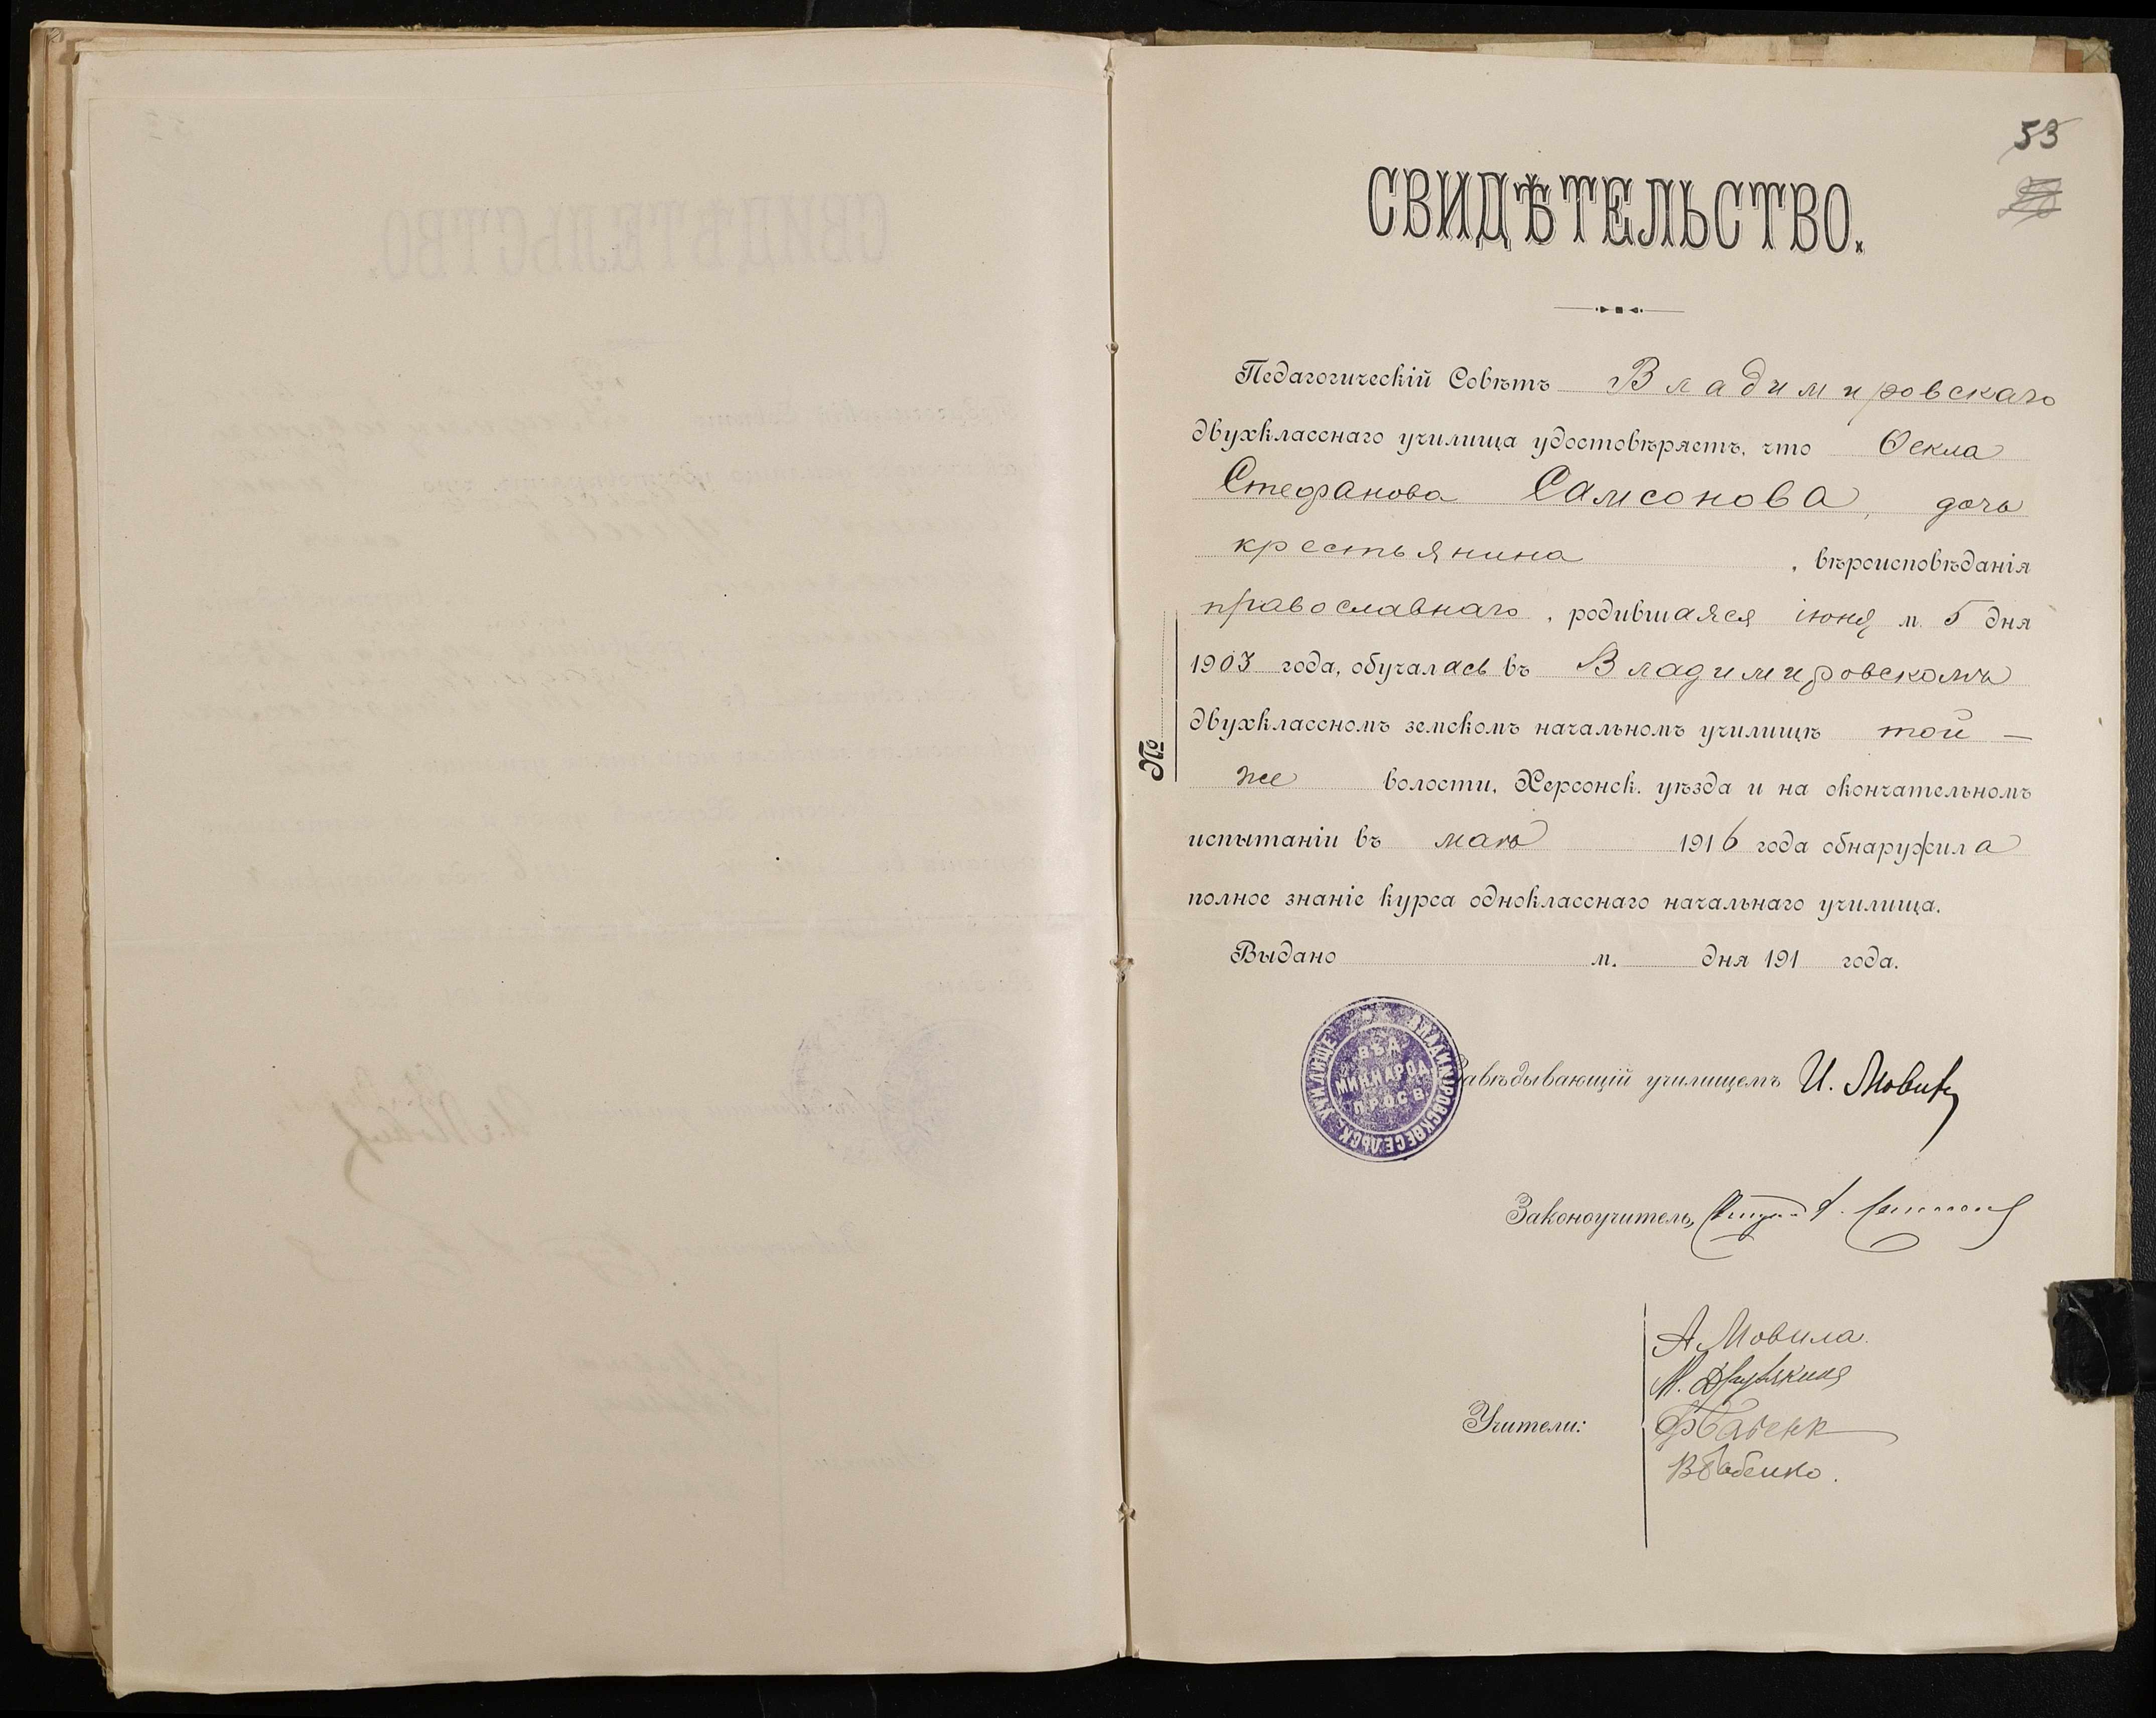 53
СВИДѢТЕЛЬСТВО.
Педагогическій Совѣтъ Владимировскаго
двухкласснаго училища удостовѣряетъ, что Ѳекла
Стефанова Самсонова, дочь
крестьянина , вѣроисповѣданія
православнаго, родившаяся іюня м. 5 дня
1903 года, обучалась въ Владимировскомъ
двухклассномъ земскомъ начальномъ училищѣ той —
же волости, Херсонск. уѣзда и на окончательномъ
испытаніи въ маѣ 1916 года обнаружила
полное знаніе курса однокласснаго начальнаго училища.
Выдано м. дня 191 года.
№
ВЛАДИМІРОВСКОЕ СЕЛЬСК. УЧИЛИЩЕ
ВѢД.
МИН. НАРОД.
ПРОСВ.
Завѣдывающій училищемъ И.
Законоучитель,
А. Мовила.
М.
Учители: